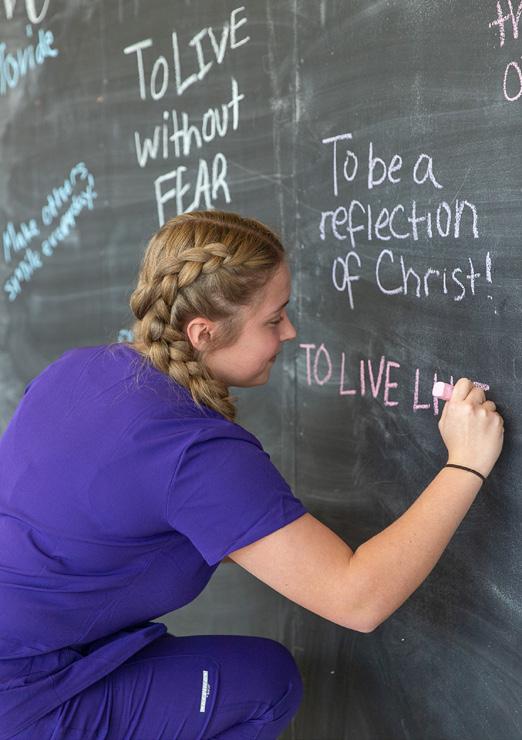 Provide
TO LIVE
without
FEAR
Make others
smile everyday!
To be a
reflection
of Christ!
TO LIVE